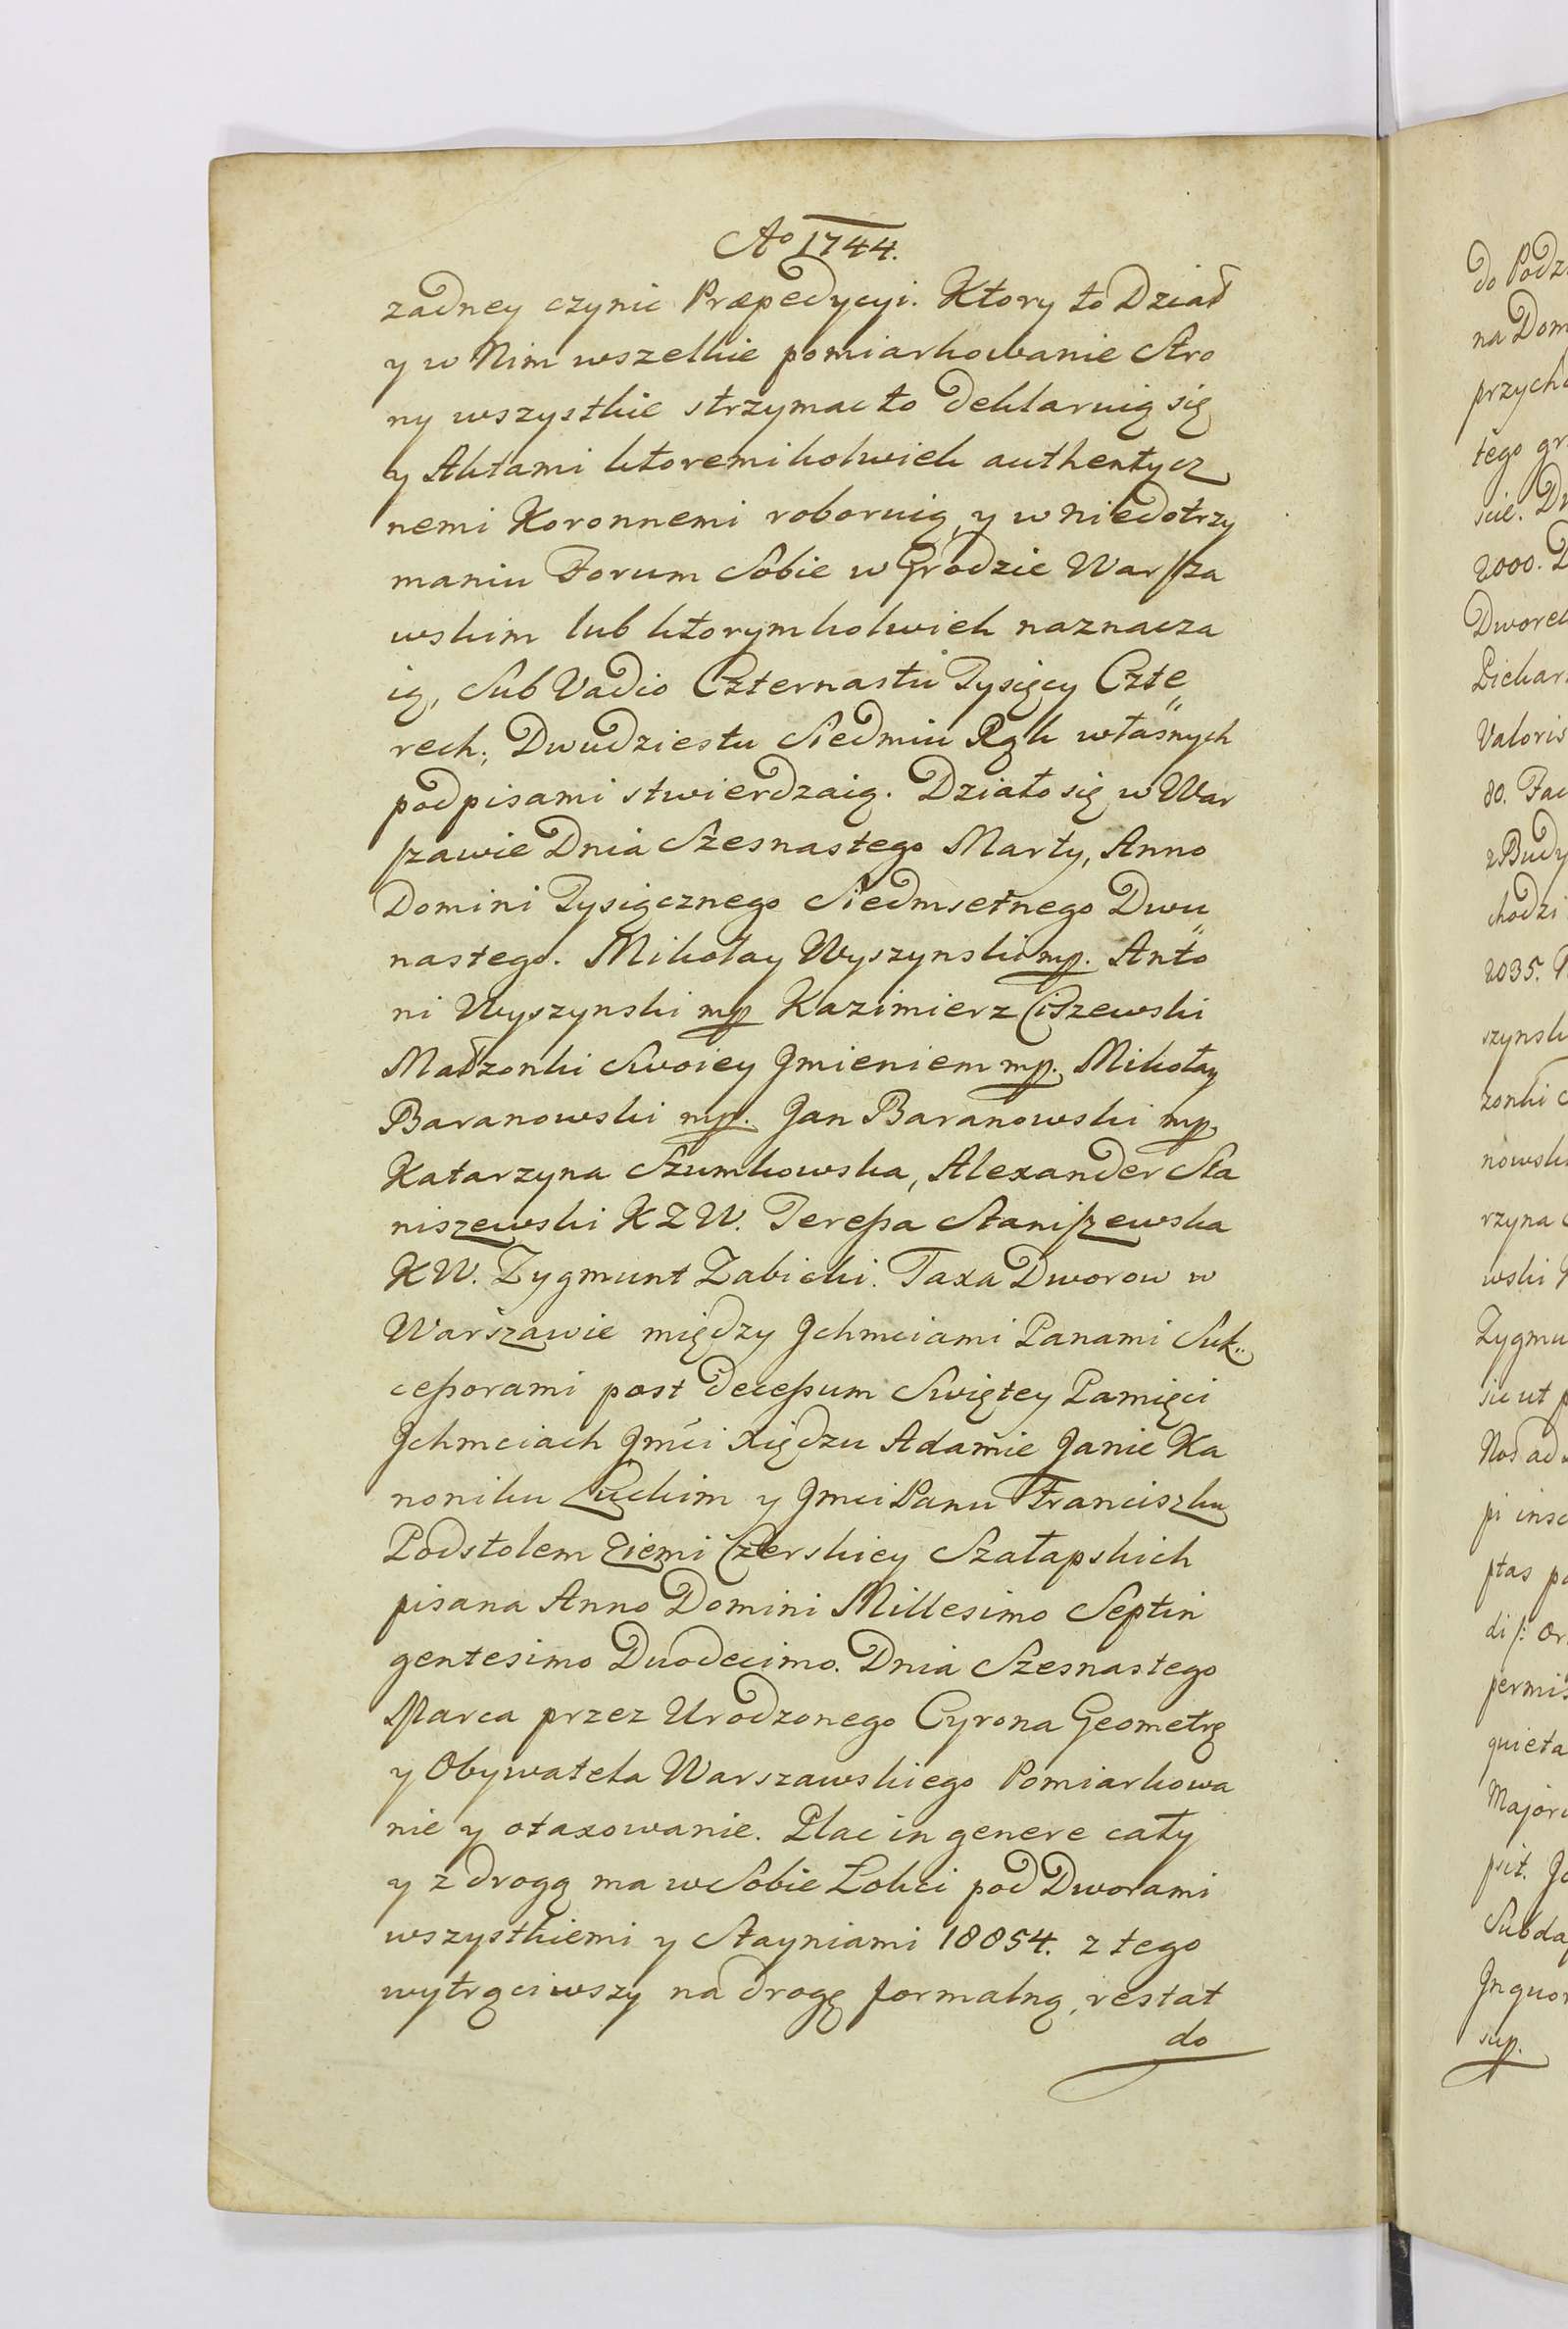 Ao 1744.
zadney czynic Præpedycyi. Ktory to Dział
y w Nim wszelkie pomiarkowanie Stro
ny wszystkie strzymac to deklaruią się
y Aktami ktoremikolwiek authentycz
nemi Koronnemi roboruią, y w niedotrzy
maniu Forum Sobie w Grodzie Warsza
wskim lub ktorymkolwiek naznacza
ią, Sub Vadio Czternastu Tysięcy Czte„
rech, Dwudziestu Siedmiu Rąk własnych
podpisami stwierdzaią. Działo się w War
szawie Dnia Szesnastego Marty, Anno
Domini Tysiącznego Siedmsetnego Dwu„
nastego. Mikołay Wyszynski mp. Anto
ni Wyszynski mp Kazimierz Ciszewski
Małzonki Swoiey Jmieniem mp. Mikołay
Baranowski mp. Jan Baranowski mp.
Katarzyna Szumkowska, Alexander Sta
niszewski KZW. Teressa Staniszewska
KW. Zygmunt Zabicki. Taxa Dworow w
Warszawie między Jchmciami Panami Suk„
cessorami post decessum Swiętey Pamięci
Jchmciach Jmći Xiędzu Adamie Janie Ka
noniku Łuckim y Jmci Panu Franciszku
Podstolem Ziemi Czerskiey Szałapskich
pisana Anno Domini Millesimo Septin
gentesimo Duodecimo. Dnia Szesnastego
Marca przez Urodzonego Cyrona Geometrę
y Obywatela Warszawskiego Pomiarkowa
nie y otaxowanie. Plac in genere cały
y z drogą ma w Sobie Łokci pod Dworami
wszystkiemi y Stayniami 18854. z tego
wytrąciwszy na drogę formalną, restat
do
do Podz
na Dom
przych
tego gr
2000.
Valoris
80. Fac
z Budy
chodzi
2035.
szynsk
zonki
nowsk
rzyna
wski
Zygmu
sicut
Nos ad
pi insc
ptas
permis
quieta
Major
psit.
Subda
Jnquor
sup.